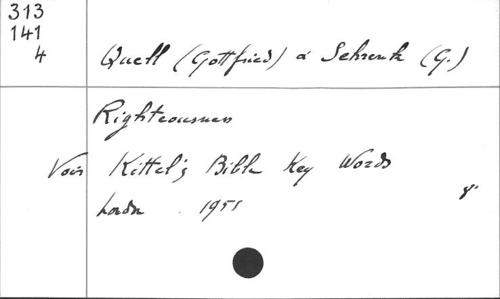 313
141
4
Quell (Gottfried) & Schrenk (G.)
Righteousness
Voir Kittel's Bible Key Words
London 1951 8°